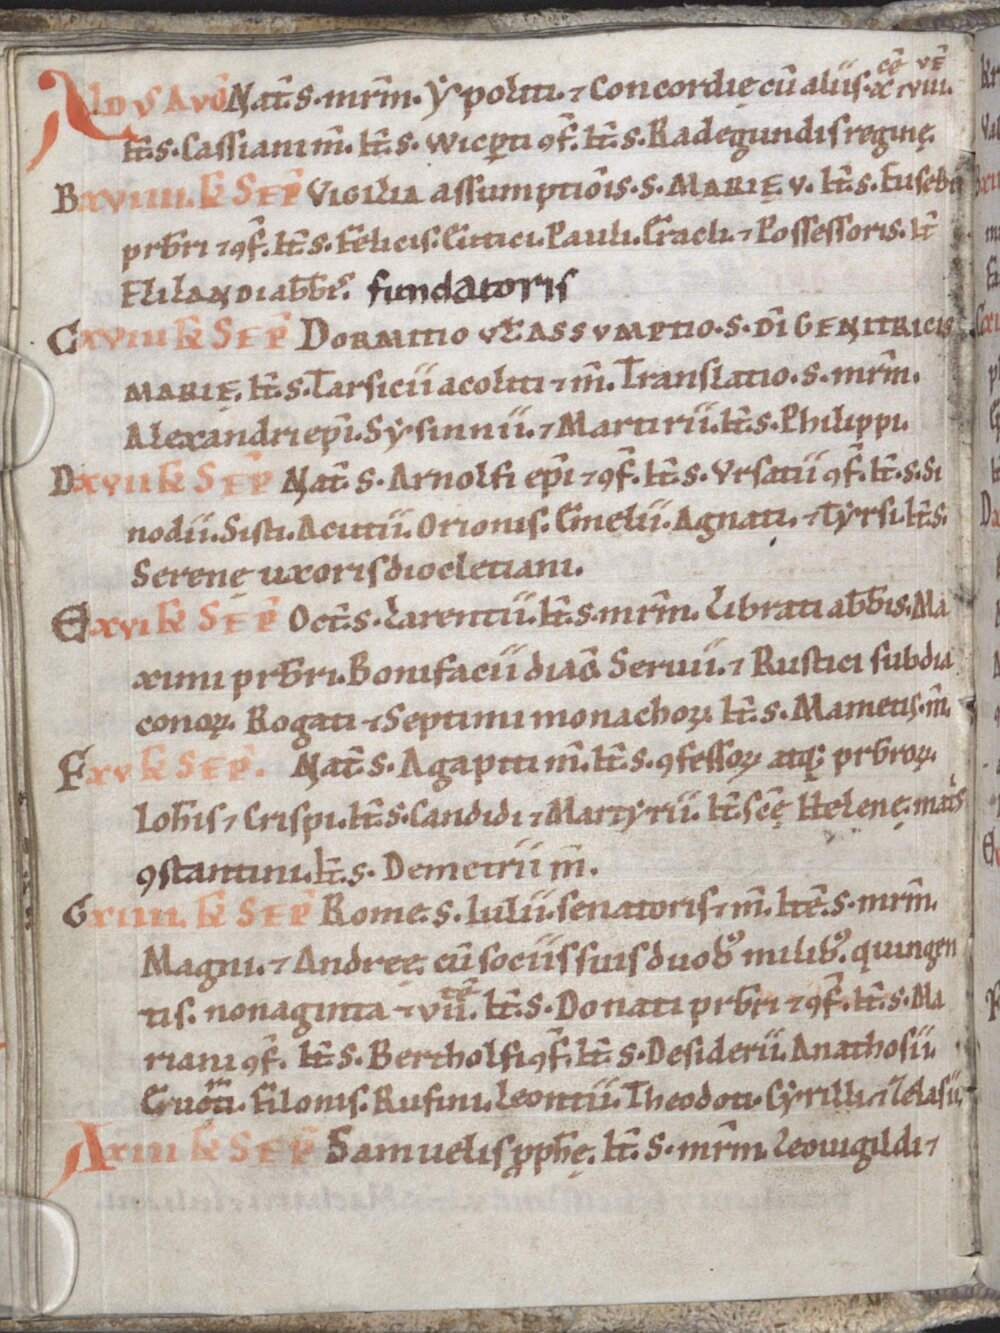 A IDVS AVḠ Nat̄. s. mr̄m. Ypoliti. ⁊ Concordię cū aliis. x ⁊ viiii.
It̄. s. Cassiani m̄. It̄. s. Wicꝑti ꝯf. It̄. s. Radegundis reginę.
B xviiii. kl SEP̄ Vigilia assumptiōis. s. MARIĘ v. It̄. s. Eusebii
prb̄ri ⁊ ꝯf̄. It̄. s. Felicis. Pauli. ⁊ Possessoris. It̄
Elilandi abb̄is. fundatoris
C xviii kl SEP̄ DORMITIO vł ASSVMPTIO. s. DĪ GENITRICIS
MARIĘ. It̄. s. Tarsicii acoliti ⁊ m̄. Translatio. s. mr̄m.
Alexandri ep̄i. Sysinnii. ⁊ Martirii. It̄. s. Philippi.
D xvii kl SEP̄ Nat̄. s. Arnolfi ep̄i ⁊ ꝯf̄. It̄. s. Vrsatii ꝯf̄. It̄. s. Si
nodii. Sisti. Acutii. Orionis. Agnati. ⁊ Tyrsi. It̄. s.
Serenę uxoris diocletiani.
E xvi kl SEP̄ Oct̄. s. Larentii. It̄. s. mr̄m. Librati abb̄is. Ma
ximi prb̄ri. Bonifacii diac̄. Seruii. ⁊ Rustici subdia
conoꝝ. Rogati ⁊ Septimi monachoꝝ. It̄. s. Mametis. m̄.
F xv kl SEP̄. Nat̄. s. Agapiti m̄. It̄. s. ꝯfessoꝝ atq; prb̄roꝝ.
Ioh̄is ⁊ Crispi. It̄. s. Candidi ⁊ Martyrii. It̄. sc̄ę Helenę. mat̄s
ꝯstantini. It̄. s. Demetrii m̄.
G xiiii. kl SEP̄ Rome. s. Iulii. senatoris ⁊ m̄. Ite̅. s. mr̄m.
Magni. ⁊ Andreę. cū sociis suis duob; milib; quingen
tis. nonaginta ⁊ vii. It̄. s. Donati prb̄ri ⁊ ꝯf̄. It̄. s. Ma
riani ꝯf̄. It̄. s. Bertholfi ꝯf̄. It̄. s. Desiderii. Anathosii.
Filonis. Rufini. Leontii. Theodoti. Cyrilli. ⁊ Gelasii.
A xiii kl SEP̄ Samuelis ꝓph̄ę. It̄. s. mr̄m. Leouigildi ⁊